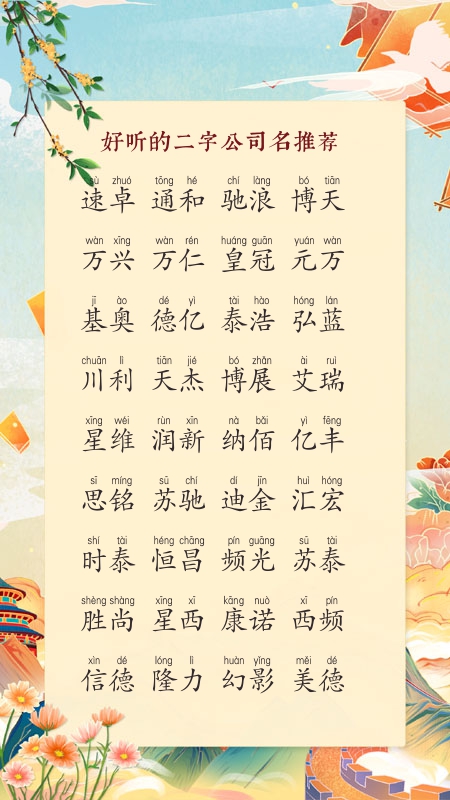 好听的二字公司名推荐
sù zhuó tōng hé chí làng bó tiān
速卓 通和 驰浪 博天
wàn xīng wàn rén huáng guān yuán wàn
万兴 万仁 皇冠 元万
jī ào dé yì tài hào hóng lán
基奥 德亿 泰浩 弘蓝
chuān lì tiān jié bó zhǎn ài ruì
川利 天杰 博展 艾瑞
xīng wéi rùn xīn nà bǎi yì fēng
星维 润新 纳佰 亿丰
sī míng sū chí dí jīn huì hóng
思铭 苏驰 迪金 汇宏
shí tài héng chāng pín guāng sū tài
时泰 恒昌 频光 苏泰
shèng shàng xīng xī kāng nuò xī pín
胜尚 星西 康诺 西频
xìn dé lóng lì huàn yǐng měi dé
信德 隆力 幻影 美德